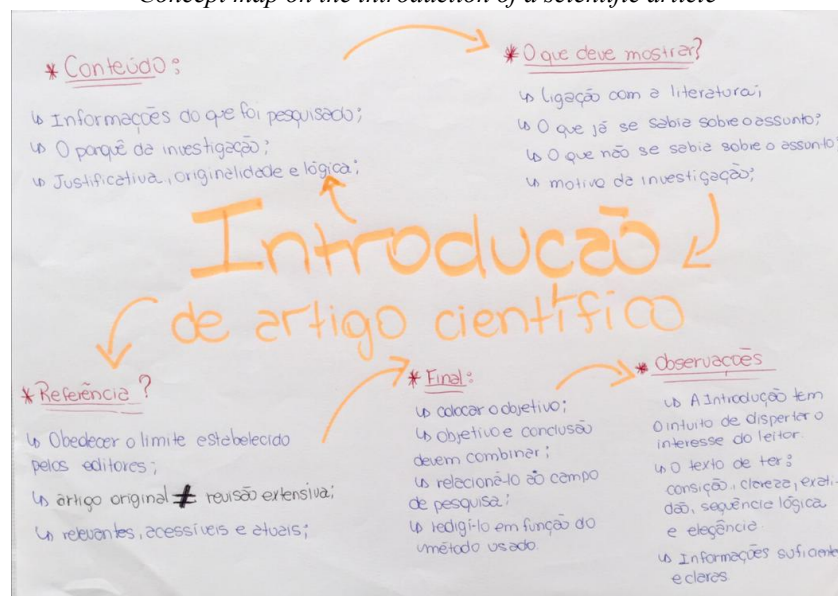 Concept map on the introduction of a scientific article
* Conteúdo:
↳ Informações do que foi pesquisado;
↳ O porquê da investigação;
↳ Justificativa, originalidade e lógica;
* O que deve mostrar?
↳ Ligação com a literatura;
↳ O que já se sabia sobre o assunto;
↳ O que não se sabia sobre o assunto;
↳ motivo da investigação;
Introdução
de artigo científico
* Referência?
↳ Obedecer o limite estabelecido
pelos editores;
↳ artigo original ≠ revisão extensiva;
↳ relevantes, acessíveis e atuais;
* Final:
↳ colocar o objetivo;
↳ objetivo e conclusão
devem combinar;
↳ relacioná-lo ao campo
de pesquisa;
↳ redigí-lo em função do
método usado.
* Observações
↳ A Introdução tem
o intuito de disperter o
interesse do leitor.
↳ O texto de ter:
consição, clareza, exati-
dão, sequência lógica
e elegância.
↳ Informações suficiente
e claras